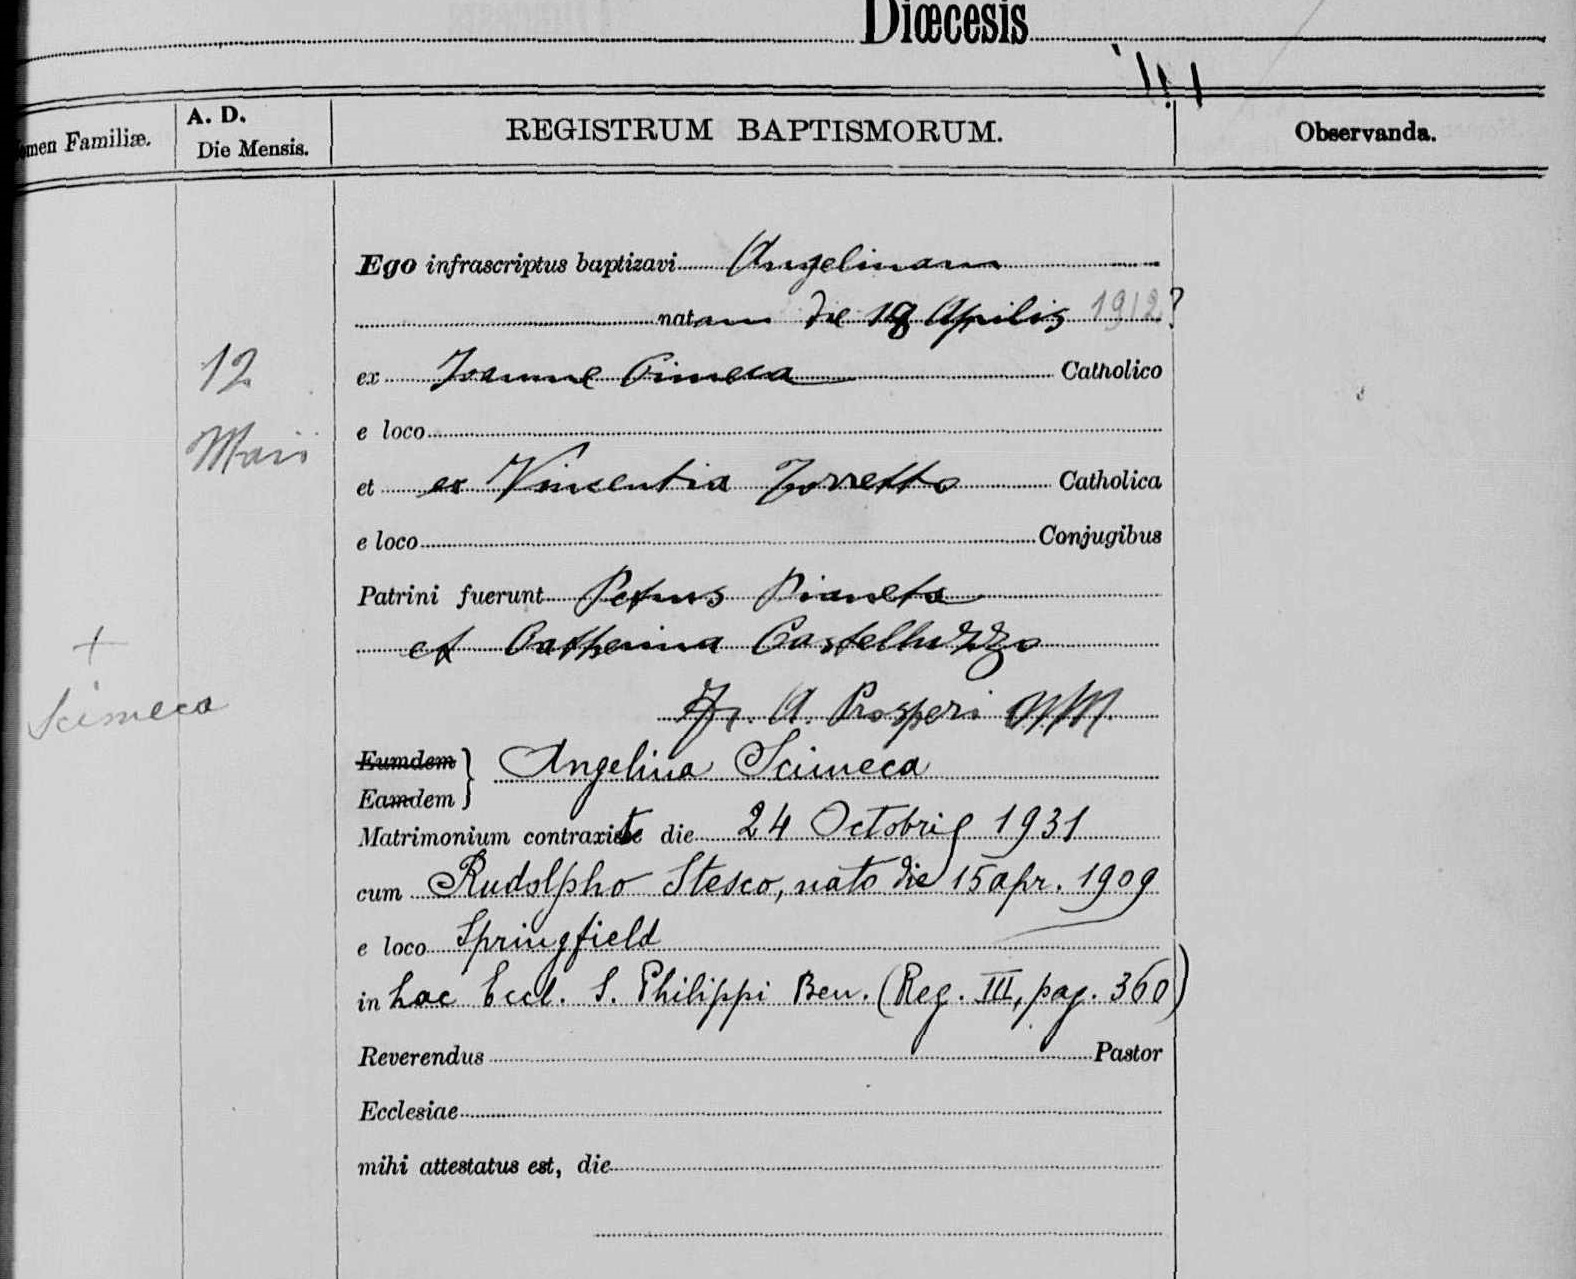 Diœcesis
omen Familiæ.
A. D.
Die Mensis.
REGISTRUM BAPTISMORUM.
Observanda.
Ego infrascriptus baptizavi Angelinam
natam die 18 Aprilis 1912?
12
Maii
ex Joanne Cimeca Catholico
e loco
et ex Vincentia Torretto Catholica
e loco Conjugibus
Patrini fuerunt Petrus Pianeta
et Catherina Castelluzzo
+
Scimeca
Fr. A. Prosperi
Eumdem
Eamdem
Angelina Scimeca
Matrimonium contraxit die 24 Octobris 1931
cum Rudolpho Stesco, nato die 15 apr. 1909
e loco Springfield
in hac Eccl. S. Philippi Ben. (Reg. III, pag. 360)
Reverendus Pastor
Ecclesiae
mihi attestatus est, die